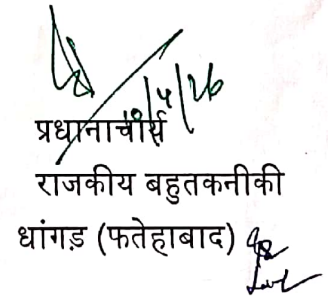 प्रधानाचार्य
राजकीय बहुतकनीकी
धांगड़ (फतेहाबाद)